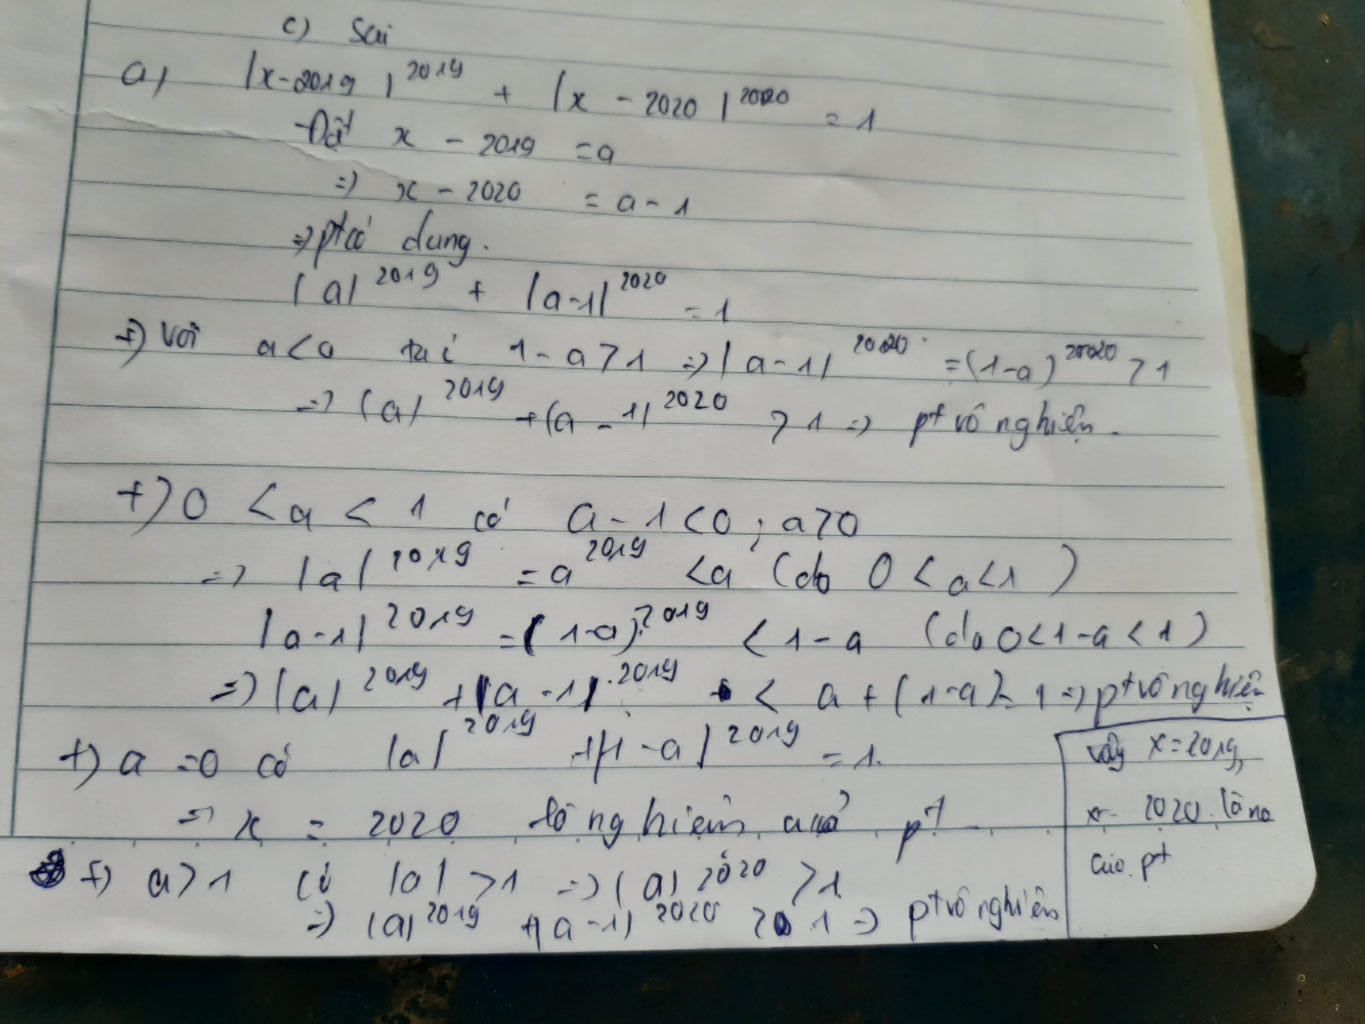 c) Sai
a) |x-2019|^2019 + |x - 2020|^2020 = 1
Đặt x - 2019 = a
=> x - 2020 = a - 1
=> pt có dạng.
|a|^2019 + |a-1|^2020 = 1
+) Với a<0 thì 1-a>1 => |a-1|^2020 = (1-a)^2020 > 1
=> |a|^2019 + |a-1|^2020 > 1 => pt vô nghiệm.
+) 0 < a < 1 có a-1<0; a>0
=> |a|^2019 = a^2019 < a (do 0<a<1)
|a-1|^2019 = (1-a)^2019 < 1-a (do 0<1-a<1)
=> |a|^2019 + |a-1|^2019 < a+(1-a)=1 => pt vô nghiệm
+) a=0 có |a|^2019 + |1-a|^2019 = 1.
=> x = 2020 là nghiệm của pt
+) a>1 có |a|>1 => |a|^2020 > 1
=> |a|^2019 + |a-1|^2020 > 1 => pt vô nghiệm
Vậy x=2019,
x= 2020 là no
của pt